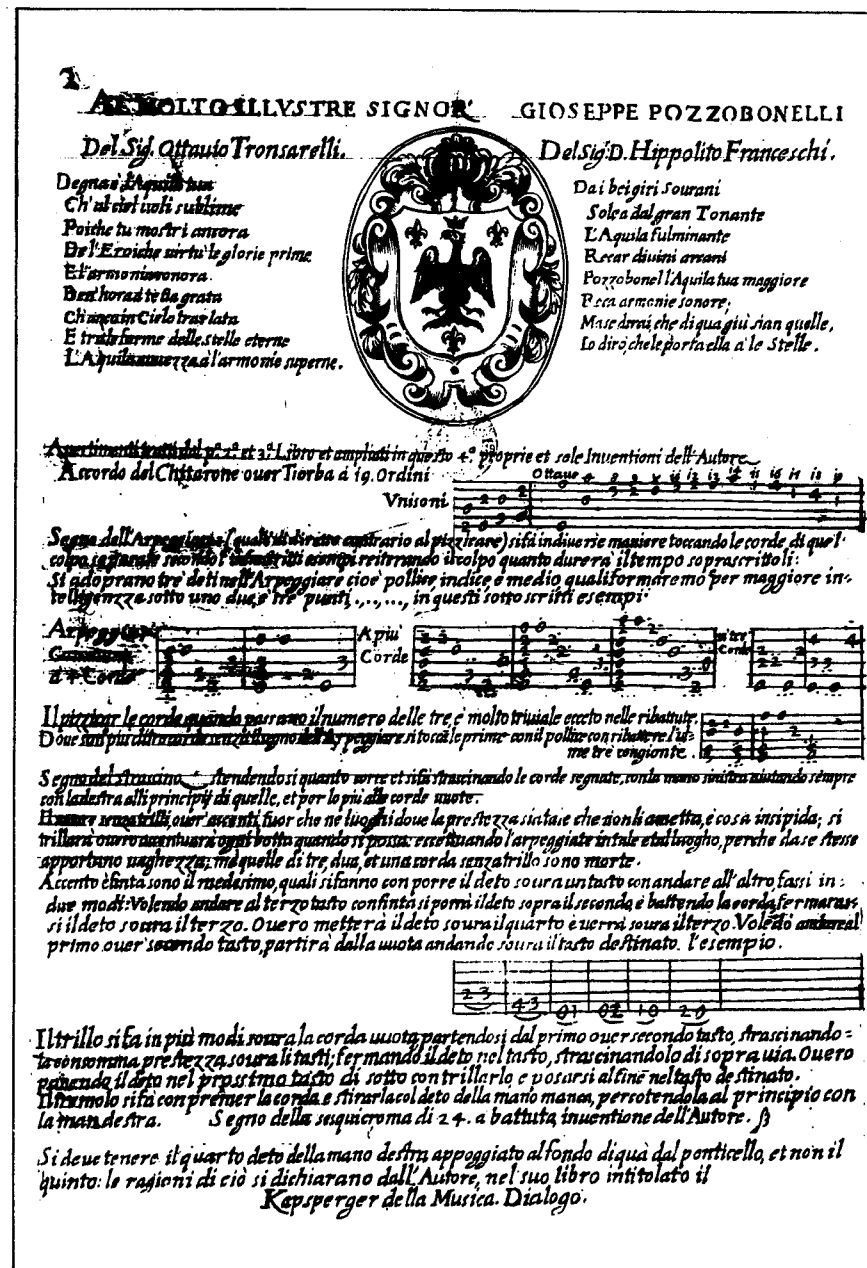 2
AL MOLTO ILLVSTRE SIGNOR GIOSEPPE POZZOBONELLI
Del Sig. Ottauio Tronsarelli.
Degna è l'Aquila tua
Ch' al ciel uoli sublime
Poiche tu mostri ancora
De l'Eroiche uirtù le glorie prime
E l'armonia sonora.
Ben' hora à te sia grata
Ch' ancor in Cielo traslata
E tra le forme delle stelle eterne
L'Aquila auuezza à l'armonie superne.
Del Sig. D. Hippolito Franceschi.
Da i bei giri sourani
Solea dal gran Tonante
L'Aquila fulminante
Recar diuini arcani
Pozzobonel l'Aquila tua maggiore
Reca armonie sonore;
Ma se dirai, che di qua giù sian quelle,
Io dirò, che le porta ella à le Stelle.
Auertimenti tratti dal p.º 2.º et 3.º Libro et ampliati in questo 4.º proprie et sole Inuentioni dell'Autore
Accordo del Chitarone ouer Tiorba à 19. Ordini
Vnisoni
Ottaue
Segno dell'Arpeggiare (qual'è di diretto contrario al pizzicare) si fà in diuerse maniere toccando le corde, di quel
colpo secondo reiterrando il colpo quanto durerà il tempo soprascrittoli:
Si adoprano trè deti nell'Arpeggiare cioè pollice, indice, e medio quali formaremo per maggiore in=
telligenzza sotto uno due, e trè punti ., .., ..., in questi sotto scritti esempi:
Arpeggiare
à 4 Corde
A più
Corde
à trè
Corde
Il pizzicar le corde quando passano il numero delle tre, è molto triuiale ecceto nelle ribattute.
Doue son più di trè corde senza il segno dell'Arpeggiare si tocca le prime con il pollice con ribattere l'ul
me trè congionte.
Segno del strascino stendendosi quanto corre et si fà strascinando le corde segnate, con la mano sinistra aiutando sempre
con la destra alli principij di quelle, et per lo più alle corde uuote.
senza trilli ouer' accenti, fuor che ne luoghi doue la prestezza sia tale che non li ametta, è cosa insipida; si
trillarà ouero accentuarà ogni botta quando si possa: eccettuando l'arpeggiate in tale e tal luogho, perche da se stesse
apportano uaghezza; mà quelle di tre, dua, et una corda senza trillo sono morte.
Accento è finta sono il medesimo, quali si fanno con porre il deto soura un tasto con andare all'altro, fassi in=
due modi: Volendo andare al terzo tasto con finta si porrà il deto sopra il secondo, e battendo la corda fermaras=
si il deto soura il terzo. Ouero metterà il deto soura il quarto è uerrà soura il terzo. Volēdo andare al
primo ouer' secondo tasto, partirà dalla uuota andando soura il tasto destinato. l'esempio.
2 3 4 3 0 1 0 2 1 0 2 0
Il trillo si fa in più modi soura la corda uuota partendosi dal primo ouer secondo tasto, strascinando=
la con somma prestezza soura li tasti; fermando il deto nel tasto, strascinandolo di sopra uia. Ouero
ponendo il deto nel prossimo tasto di sotto con trillarlo, e posarsi al fine nel tasto destinato.
Il tremolo si fà con premer la corda, e stirarla col deto della mano manca, percotendola al principio con
la man destra. Segno della sesquicroma di 24. a battuta, inuentione dell'Autore.
Si deue tenere il quarto deto della mano destra appoggiato al fondo di quà dal ponticello, et non il
quinto: le ragioni di ciò si dichiarano dall'Autore, nel suo libro intitolato il
Kapsperger della Musica. Dialogo.